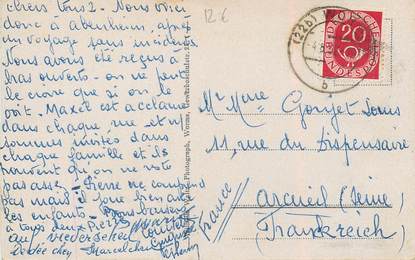 chers tous 2 - Nous voici
donc à Abenheim, après
un voyage sans incident
Nous avons été reçus à
bras ouverts - on ne peut
le croire que si on le
voit. Maxel est acclamé
dans chaque rue, et n/
sommes invités dans
chaque famille et ils
trouvent qu'on ne reste
pas assez. Pierre ne comprend
pas mais il joue bien avec
les enfants -
à tous deux
au wiedersehen
Dédée chez Marcel
12 €
(22b)
b
DEUTSCHE
20
BUNDESPOST
Photograph, Worms,
Mr Mme Gonjet Louis
11, rue du Dispensaire
Arcueil (Seine)
(Frankreich)
France